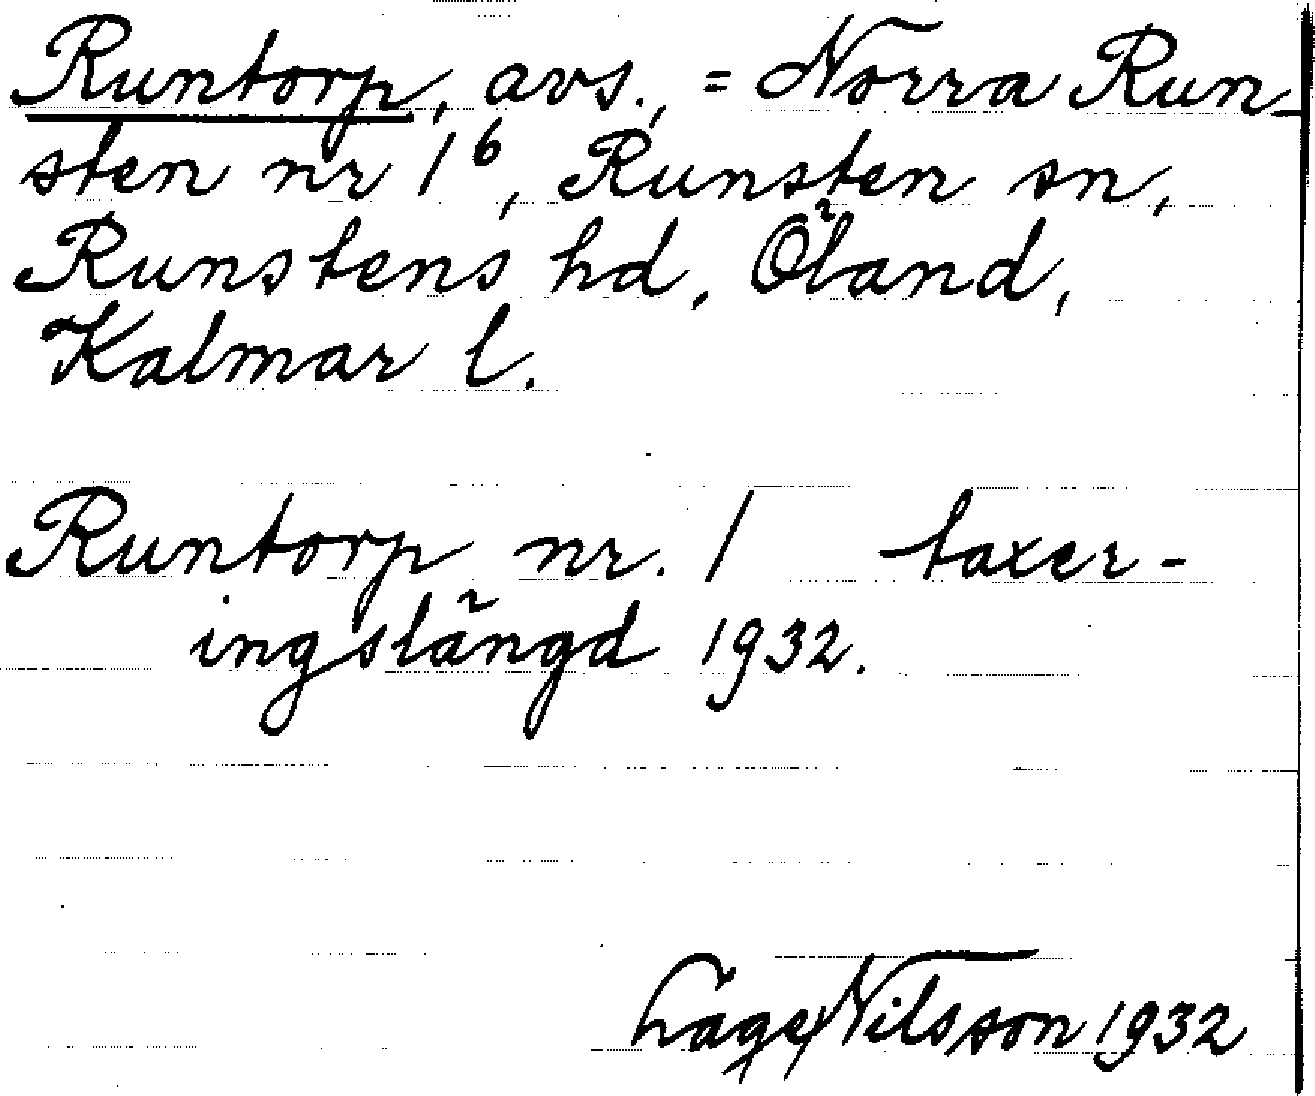 Runtorp, avs., = Norra Run-
sten nr 1⁶, Runsten sn,
Runstens hd, Öland,
Kalmar l.
Runtorp nr. 1 taxer-
ingslängd 1932.
Nilsson 1932